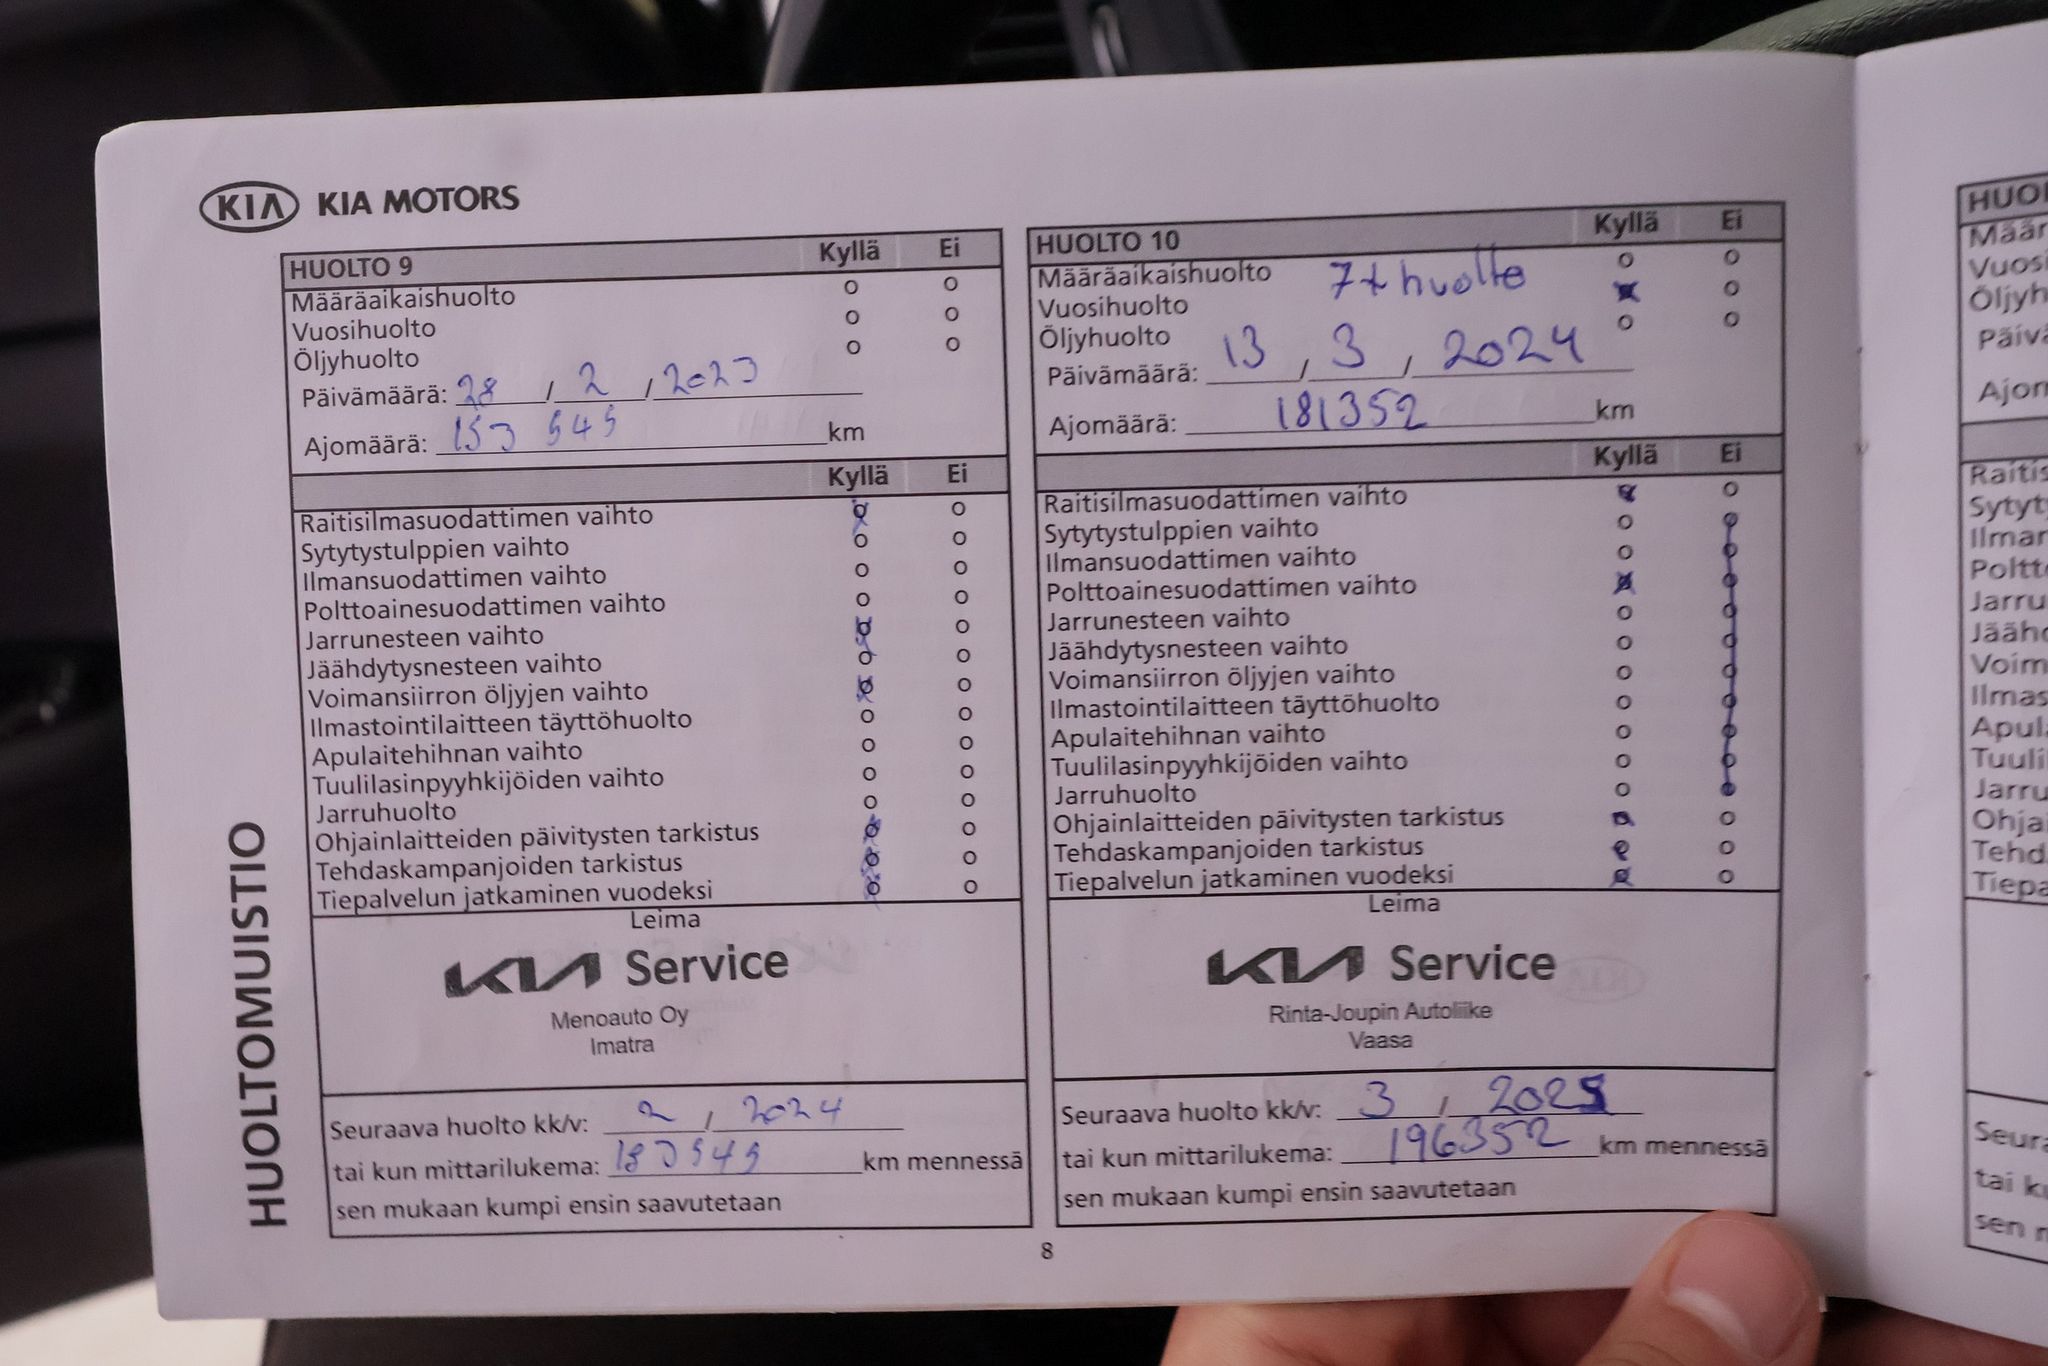 KIA KIA MOTORS
HUOLTOMUISTIO
HUOLTO 9 Kyllä Ei
Määräaikaishuolto
Vuosihuolto
Öljyhuolto
Päivämäärä: 28 / 2 / 2023
Ajomäärä: 153 545 km
Kyllä Ei
Raitisilmasuodattimen vaihto
Sytytystulppien vaihto
Ilmansuodattimen vaihto
Polttoainesuodattimen vaihto
Jarrunesteen vaihto
Jäähdytysnesteen vaihto
Voimansiirron öljyjen vaihto
Ilmastointilaitteen täyttöhuolto
Apulaitehihnan vaihto
Tuulilasinpyyhkijöiden vaihto
Jarruhuolto
Ohjainlaitteiden päivitysten tarkistus
Tehdaskampanjoiden tarkistus
Tiepalvelun jatkaminen vuodeksi
Leima
KIA Service
Menoauto Oy
Imatra
Seuraava huolto kk/v: 2 / 2024
tai kun mittarilukema: 183545 km mennessä
sen mukaan kumpi ensin saavutetaan
HUOLTO 10 Kyllä Ei
Määräaikaishuolto 7+ huolto
Vuosihuolto
Öljyhuolto
Päivämäärä: 13 / 3 / 2024
Ajomäärä: 181352 km
Kyllä Ei
Raitisilmasuodattimen vaihto
Sytytystulppien vaihto
Ilmansuodattimen vaihto
Polttoainesuodattimen vaihto
Jarrunesteen vaihto
Jäähdytysnesteen vaihto
Voimansiirron öljyjen vaihto
Ilmastointilaitteen täyttöhuolto
Apulaitehihnan vaihto
Tuulilasinpyyhkijöiden vaihto
Jarruhuolto
Ohjainlaitteiden päivitysten tarkistus
Tehdaskampanjoiden tarkistus
Tiepalvelun jatkaminen vuodeksi
Leima
KIA Service
Rinta-Joupin Autoliike
Vaasa
Seuraava huolto kk/v: 3 / 2025
tai kun mittarilukema: 196352 km mennessä
sen mukaan kumpi ensin saavutetaan
8